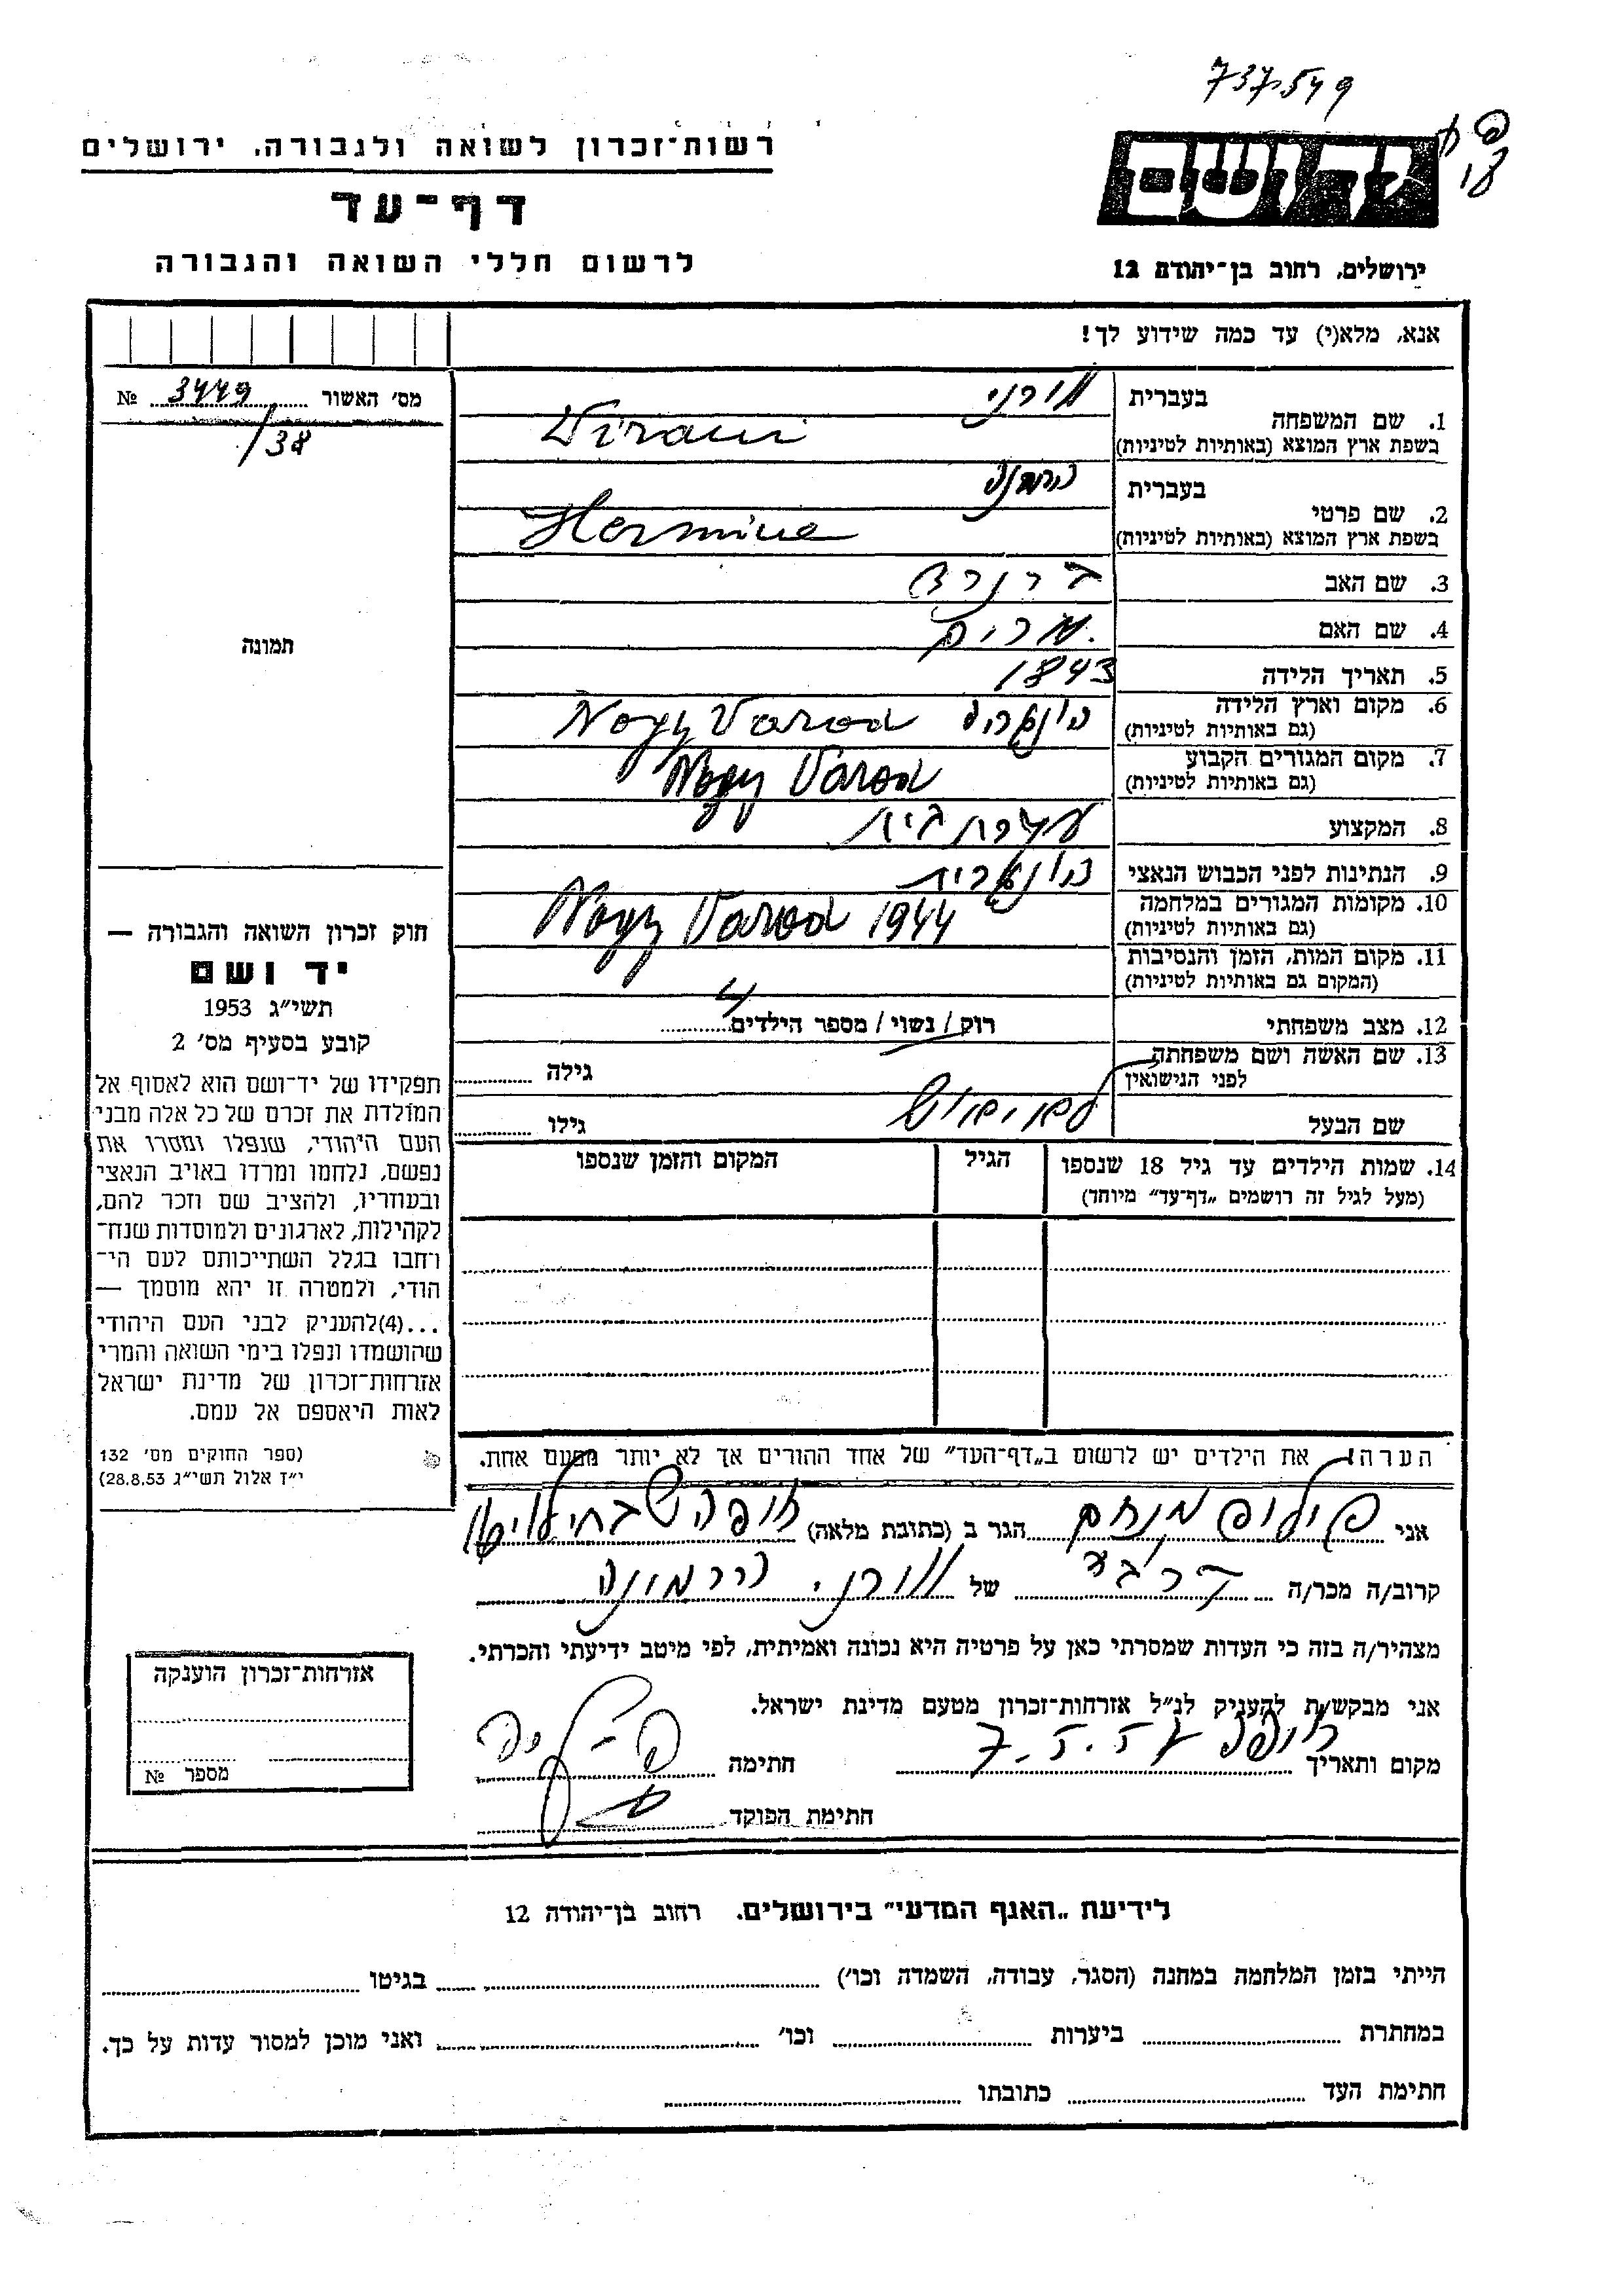 737549
רשות־זכרון לשואה ולגבורה, ירושלים
יד ושם
דף־עד
לרשום חללי השואה והגבורה
ירושלים, רחוב בן־יהודה 12
אנא, מלא(י) עד כמה שידוע לך!
מס' האשור 3449 №
/38
תמונה
1. שם המשפחה
בעברית
בשפת ארץ המוצא (באותיות לטיניות)
2. שם פרטי
בעברית
בשפת ארץ המוצא (באותיות לטיניות) Hermine
3. שם האב
4. שם האם מרים
5. תאריך הלידה 1843
6. מקום וארץ הלידה הונגריה Nogy Varod
(גם באותיות לטיניות)
7. מקום המגורים הקבוע Nogy Varod
(גם באותיות לטיניות)
8. המקצוע עקרת בית
9. הנתינות לפני הכבוש הנאצי הונגרית
10. מקומות המגורים במלחמה Nogy Varod 1944
(גם באותיות לטיניות)
11. מקום המות, הזמן והנסיבות
(המקום גם באותיות לטיניות)
12. מצב משפחתי רוק / נשוי / מספר הילדים 4
13. שם האשה ושם משפחתה
לפני הנישואין גילה
שם הבעל גילו
14. שמות הילדים עד גיל 18 שנספו הגיל המקום והזמן שנספו
(מעל לגיל זה רושמים „דף־עד" מיוחד)
חוק זכרון השואה והגבורה —
יד ושם
תשי"ג 1953
קובע בסעיף מס' 2
תפקידו של יד־ושם הוא לאסוף אל
המולדת את זכרם של כל אלה מבני
העם היהודי, שנפלו ומסרו את
נפשם, נלחמו ומרדו באויב הנאצי
ובעוזריו, ולהציב שם וזכר להם,
לקהילות, לארגונים ולמוסדות שנח־
רחבו בגלל השתייכותם לעם הי־
הודי, ולמטרה זו יהא מוסמך —
...(4)להעניק לבני העם היהודי
שהושמדו ונפלו בימי השואה והמרי
אזרחות־זכרון של מדינת ישראל
לאות היאספם אל עמם.
(ספר החוקים מס' 132
י"ז אלול תשי"ג 28.8.53)
הערה: את הילדים יש לרשום ב„דף־העד" של אחד ההורים אך לא יותר מפעם אחת.
אני פילופ מנחם הגר ב (כתובת מלאה) חיפה
קרוב/ה מכר/ה של וורני הרמינה
מצהיר/ה בזה כי העדות שמסרתי כאן על פרטיה היא נכונה ואמיתית, לפי מיטב ידיעתי והכרתי.
אני מבקש/ת להעניק לנ"ל אזרחות־זכרון מטעם מדינת ישראל.
מקום ותאריך חיפה 7.5.57 חתימה
חתימת הפוקד
אזרחות־זכרון הוענקה
מספר №
לידיעת „האגף המדעי" בירושלים. רחוב בן־יהודה 12
הייתי בזמן המלחמה במחנה (הסגר, עבודה, השמדה וכו') בגיטו
במחתרת ביערות וכו' ואני מוכן למסור עדות על כך.
חתימת העד כתובתו